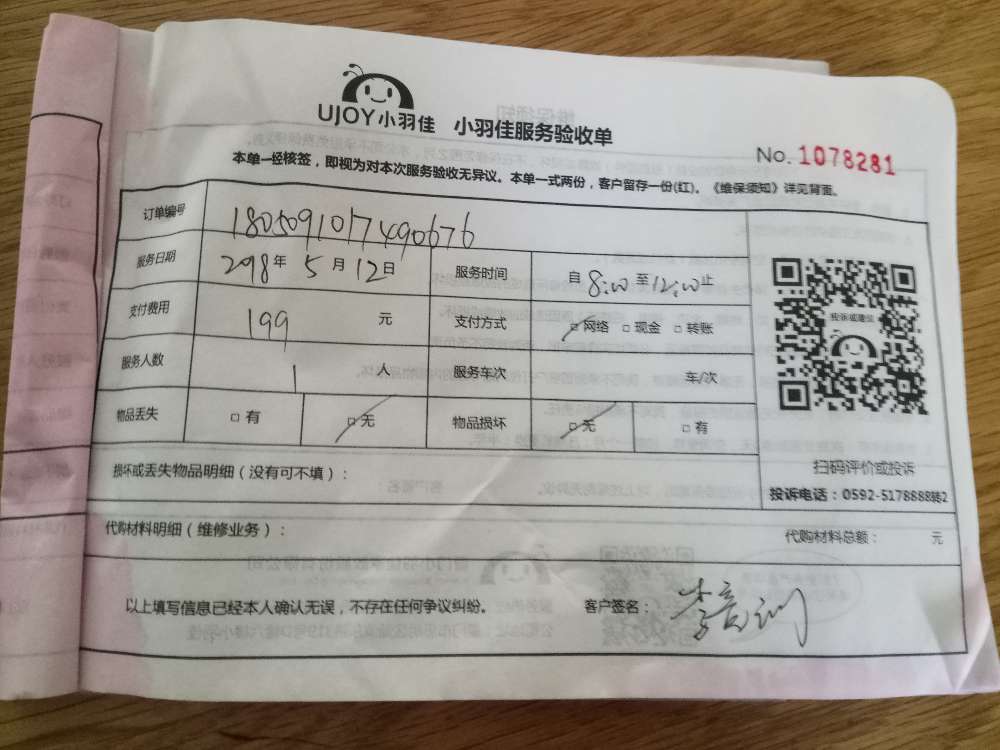 UJOY小羽佳 小羽佳服务验收单
No. 1078281
本单一经核签，即视为对本次服务验收无异议。本单一式两份，客户留存一份(红)。《维保须知》详见背面。
订单编号 1805091017490676
服务日期 2018年 5月 12日 服务时间 自 8:00 至 12:00 止
支付费用 199 元 支付方式 □网络 □现金 □转账
服务人数 1 人 服务车次 车/次
物品丢失 □有 □无 物品损坏 □无 □有
投诉或建议
扫码评价或投诉
投诉电话：0592-5178888转2
损坏或丢失物品明细（没有可不填）：
代购材料明细（维修业务）： 代购材料总额： 元
以上填写信息已经本人确认无误，不存在任何争议纠纷。 客户签名：